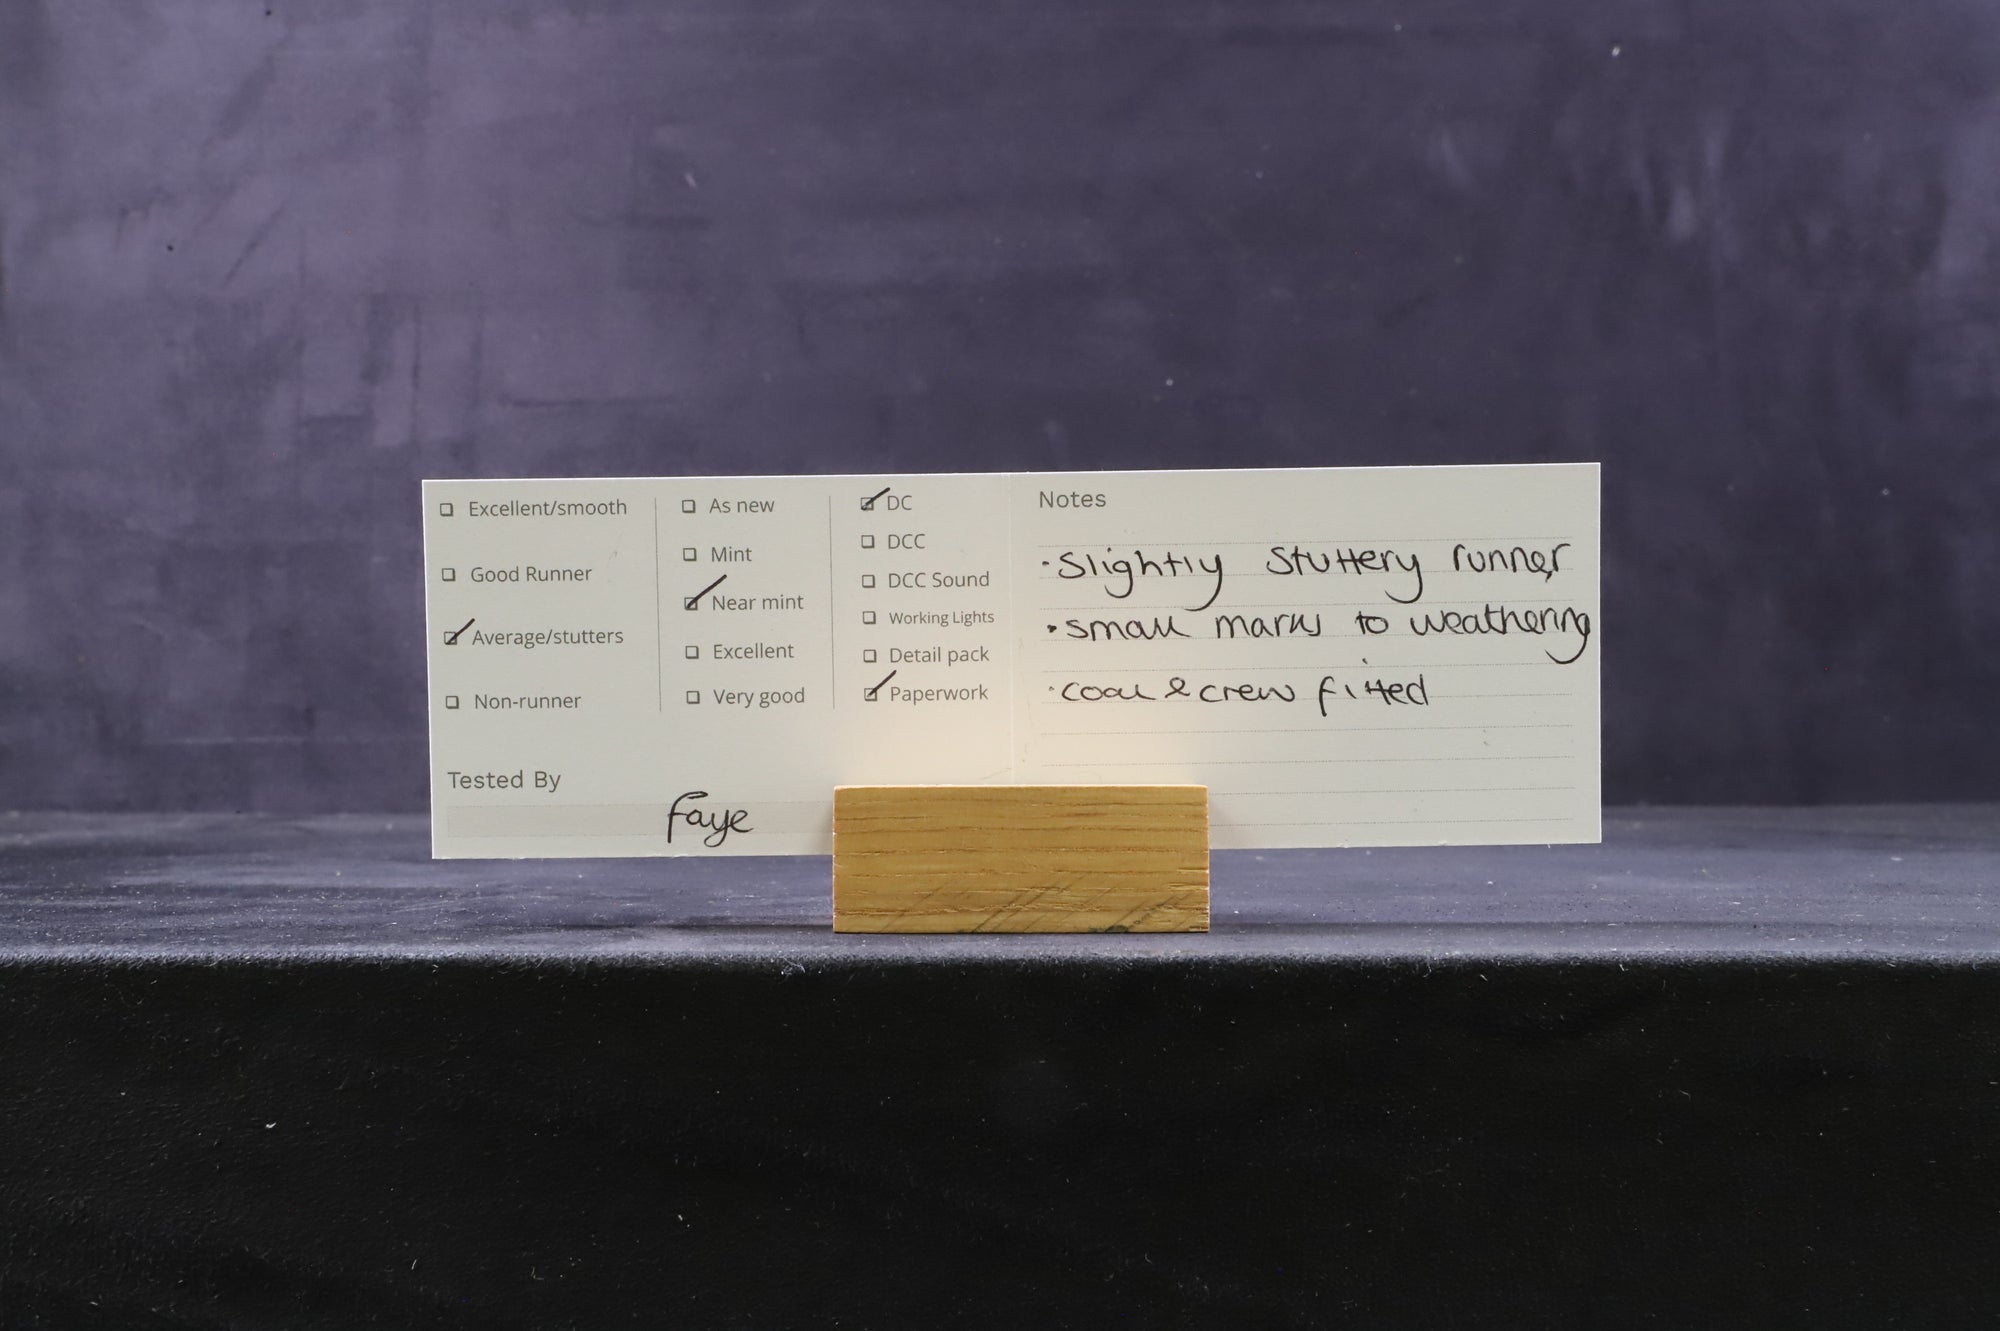 ☐ Excellent/smooth
☐ Good Runner
☑ Average/stutters
☐ Non-runner
Tested By
Faye
☐ As new
☐ Mint
☑ Near mint
☐ Excellent
☐ Very good
☑ DC
☐ DCC
☐ DCC Sound
☐ Working Lights
☐ Detail pack
☑ Paperwork
Notes
· Slightly stuttery runner
· small marks to weathering
· coal & crew fitted